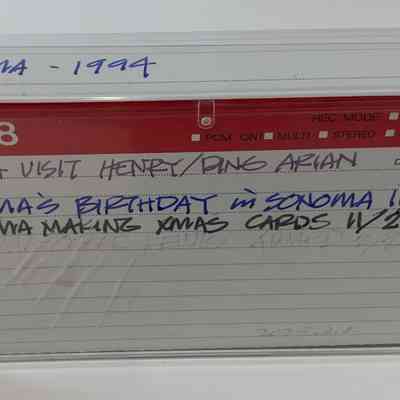 MA - 1994
8 REC MODE
PCM ON MULTI STEREO
VISIT HENRY/DING ARIAN
MA'S BIRTHDAY in SONOMA 11
MA MAKING XMAS CARDS 11/2